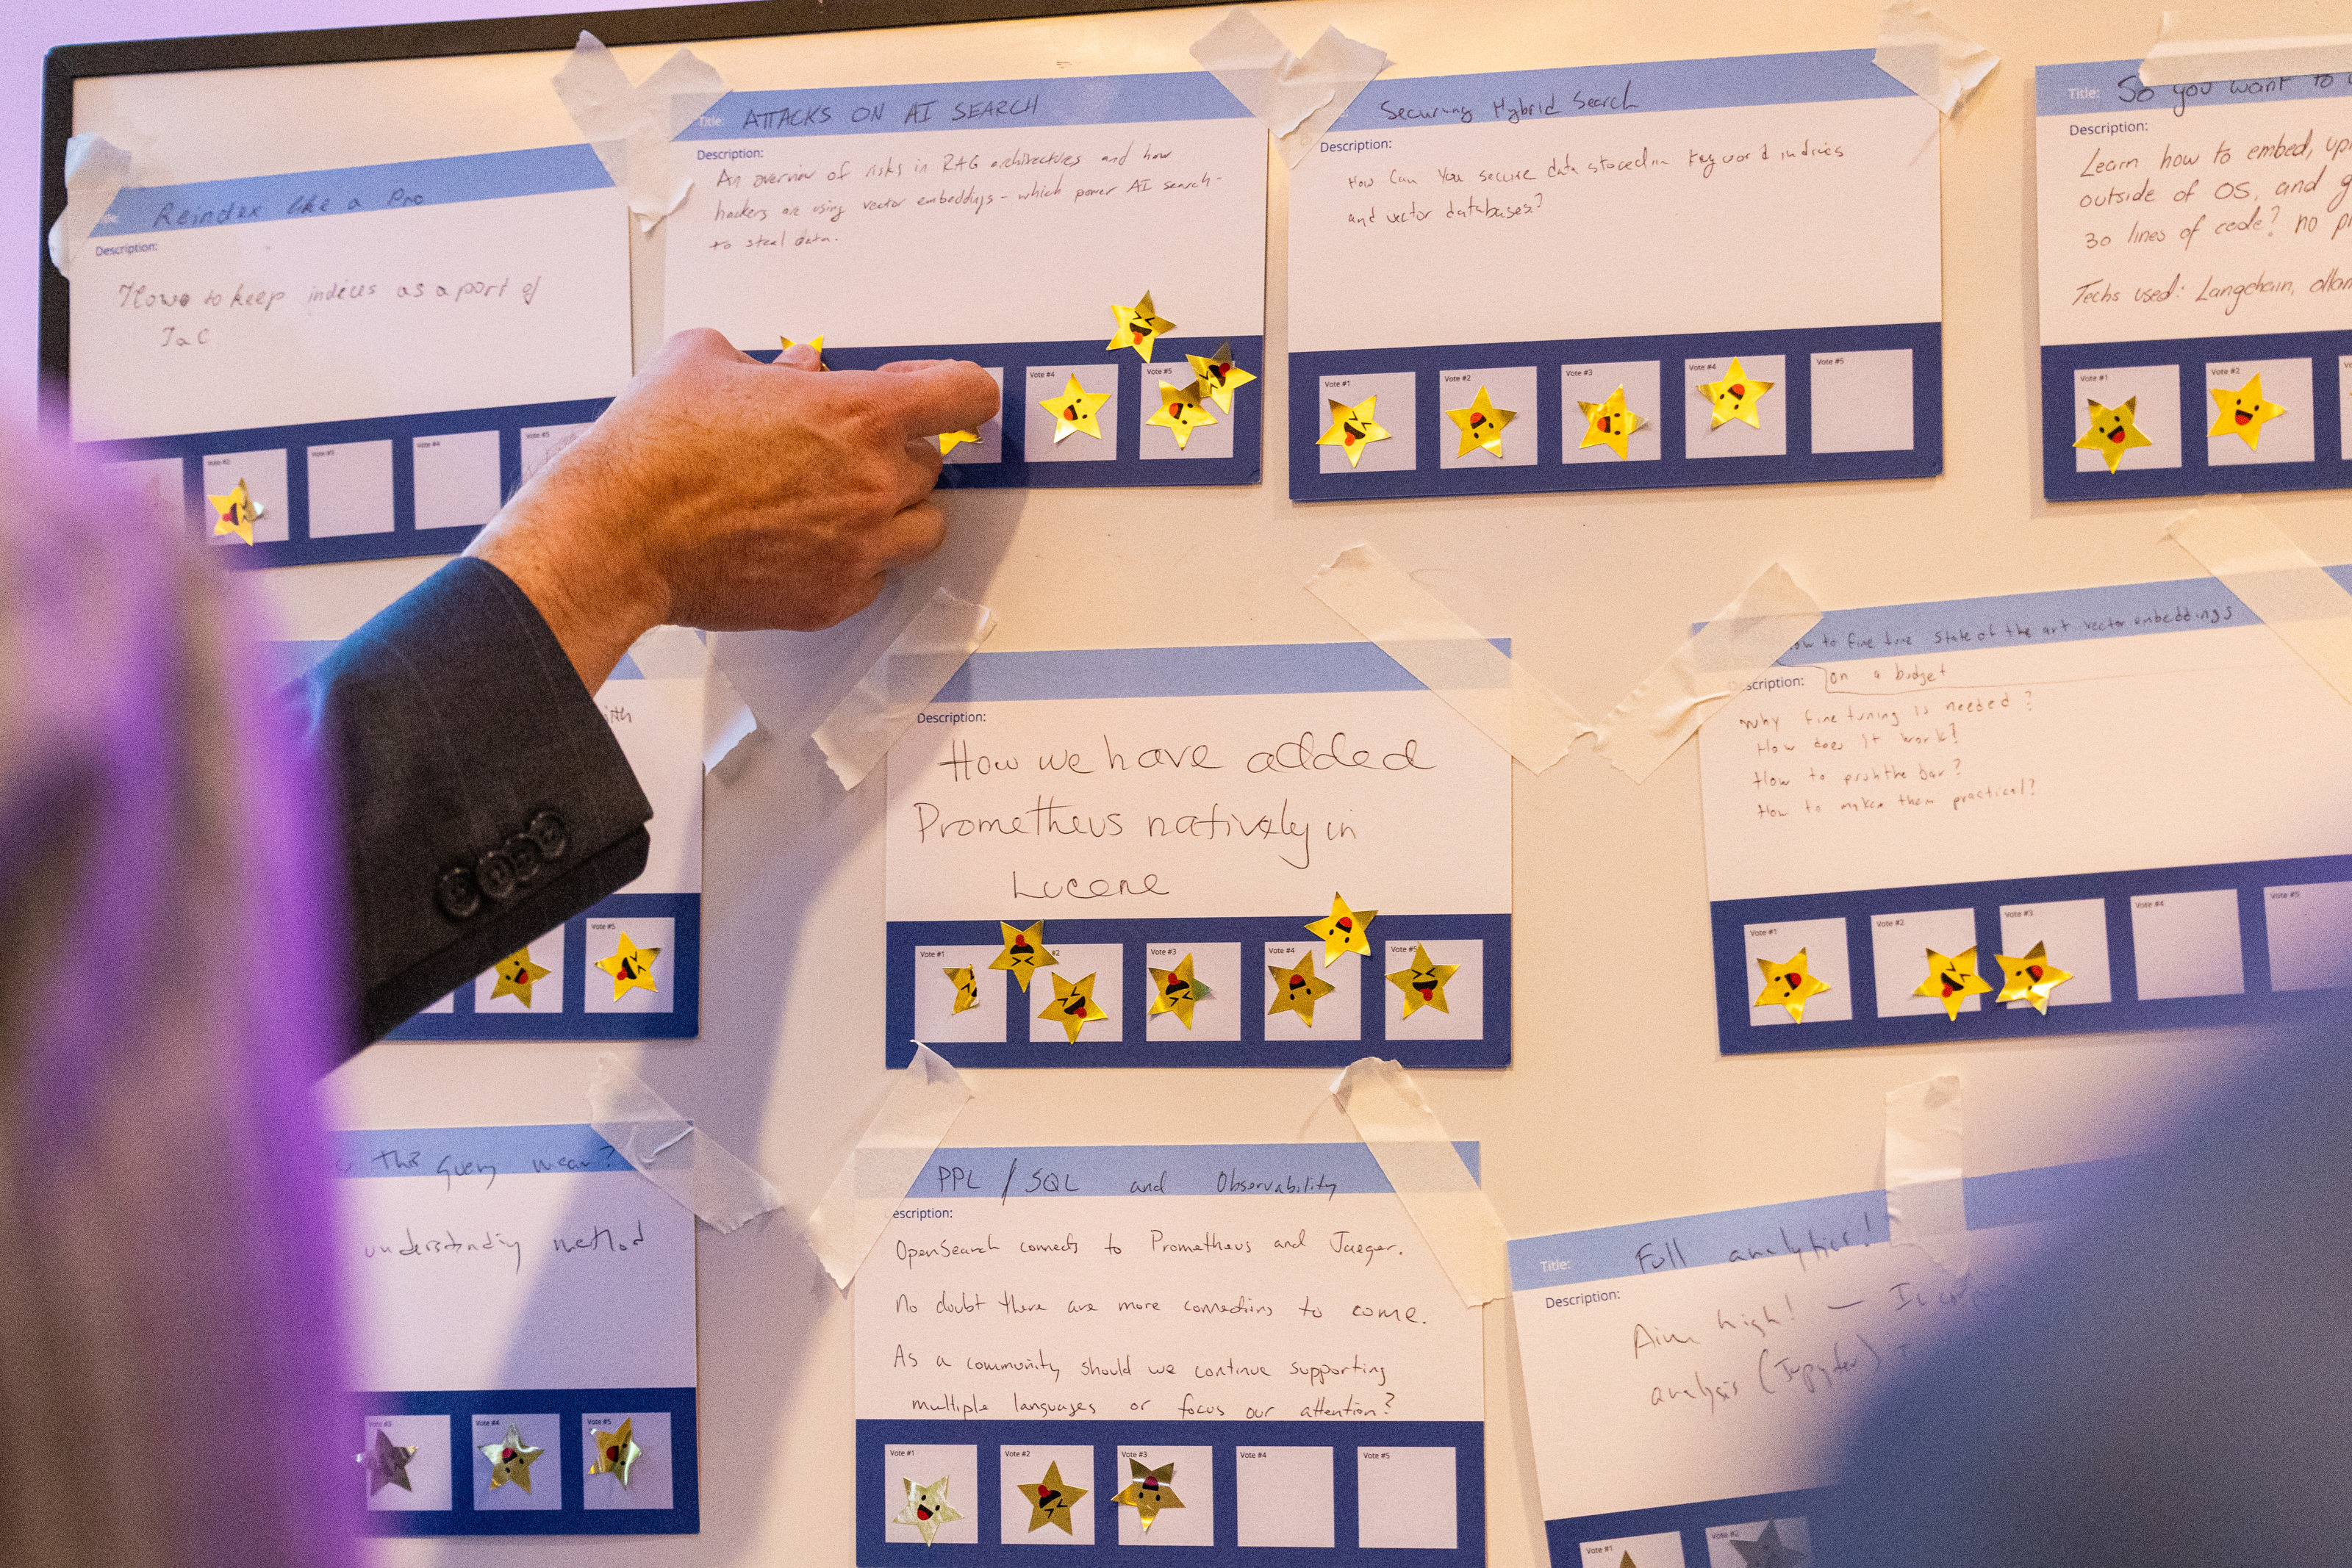 Reindex like a Pro
Description:
How to keep indices as a part of
IaC
Vote #2
Vote #3
Vote #4
Vote #5
Title: ATTACKS ON AI SEARCH
Description:
An overview of risks in RAG architectures and how
hackers are using vector embeddings - which power AI search -
to steal data.
Vote #4
Vote #5
Securing Hybrid Search
Description:
How can you secure data stored in keyword indices
and vector databases?
Vote #1
Vote #2
Vote #3
Vote #4
Vote #5
Title: So you want to
Description:
Learn how to embed,
outside of OS, and
30 lines of code? no
Techs used: Langchain,
Vote #1
Vote #2
Vote #5
Description:
How we have added
Prometheus natively in
Lucene
Vote #1
#2
Vote #3
Vote #4
Vote #5
How to fine tune state of the art vector embeddings
Description: on a budget
Why fine tuning is needed?
How does it work?
How to push the bar?
How to make them practical?
Vote #1
Vote #2
Vote #3
Vote #4
Vote #5
this query mean?
understanding method
Vote #3
Vote #4
Vote #5
PPL / SQL and Observability
escription:
OpenSearch connects to Prometheus and Jaeger.
No doubt there are more connections to come.
As a community should we continue supporting
multiple languages or focus our attention?
Vote #1
Vote #2
Vote #3
Vote #4
Vote #5
Title: Full analytics!
Description:
Aim high! -
analysis (Jupyter)
Vote #1
Vote #2